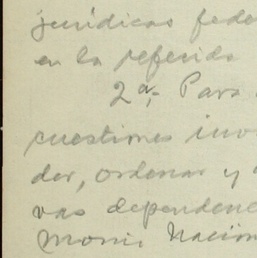 jurídicas fede
en la referida
2ª, Para
cuestiones invo
der, ordenar y
vas dependenc
Nación